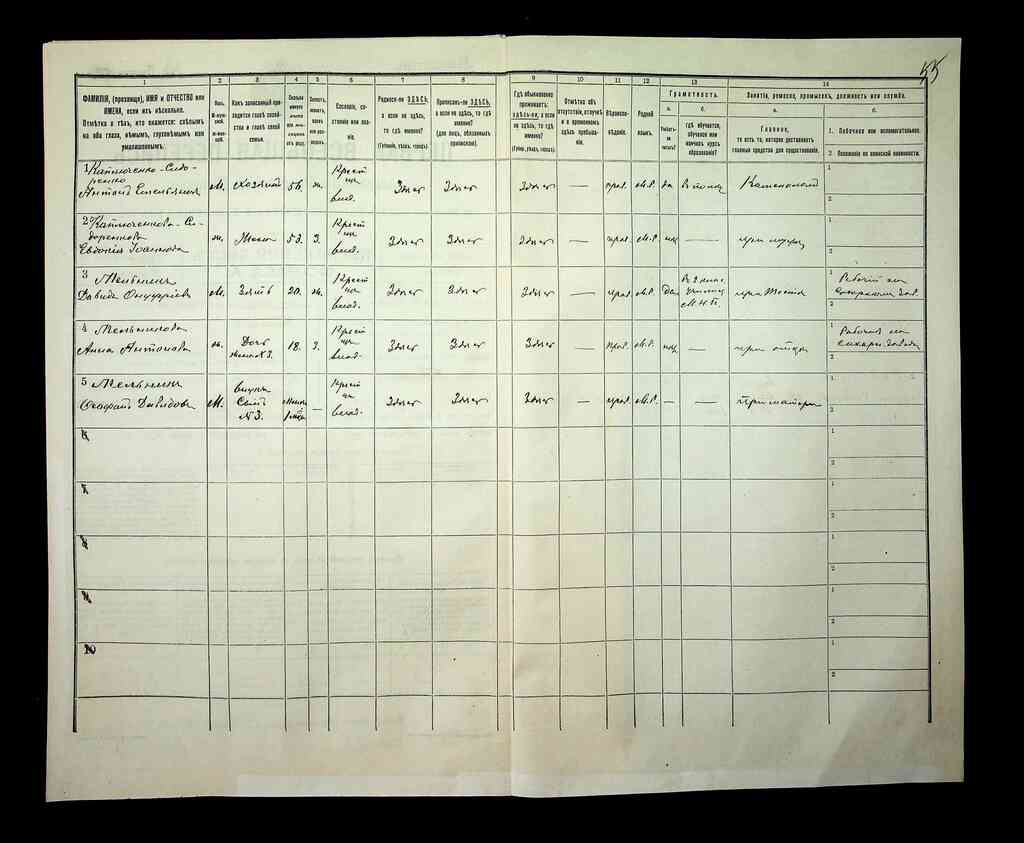 55
1 2 3 4 5 6 7 8 9 10 11 12 13 14
ФАМИЛІЯ, (прозвище), ИМЯ и ОТЧЕСТВО или
ИМЕНА, если ихъ нѣсколько.
Отмѣтка о тѣхъ, кто окажется: слѣпымъ
на оба глаза, нѣмымъ, глухонѣмымъ или
умалишеннымъ.
Полъ.
М-муж-
ской.
Ж-жен-
скій.
Какъ записанный при-
ходится главѣ хозяй-
ства и главѣ своей
семьи.
Сколько
минуло
лѣтъ
или мѣ-
сяцевъ
отъ роду.
Холостъ,
женатъ,
вдовъ
или раз-
веденъ.
Сословіе, со-
стояніе или зва-
ніе.
Родился-ли ЗДѢСЬ,
а если не здѣсь,
то гдѣ именно?
(Губернія, уѣздъ, городъ).
Приписанъ-ли ЗДѢСЬ,
а если не здѣсь, то гдѣ
именно?
(для лицъ, обязанныхъ
припискою).
Гдѣ обыкновенно
проживаетъ:
здѣсь-ли, а если
не здѣсь, то гдѣ
именно?
(Губер., уѣздъ, городъ).
Отмѣтка объ
отсутствіи, отлучкѣ
и о временномъ
здѣсь пребыва-
ніи.
Вѣроиспо-
вѣданіе.
Родной
языкъ.
Грамотность.
а. б.
Умѣетъ-
ли
читать?
гдѣ обучается,
обучался или
кончилъ курсъ
образованія?
Занятіе, ремесло, промыселъ, должность или служба.
а. б.
Главное,
то есть то, которое доставляетъ
главныя средства для существованія.
1. Побочное или вспомогательное.
2. Положеніе по воинской повинности.
1 Сидо-
ренко
Антонъ Емельянов
М. Хозяинъ 56. ж. Крест
влад. Здѣсь Здѣсь Здѣсь — прав. М.Р. да
1
2
2
Евдокія Іоаннова
ж. Жена 53. З. Крест
влад. Здѣсь Здѣсь Здѣсь — прав. М.Р. нѣт — при мужѣ
1
2
3 Мельник
Давидъ Онуфріев
М. Зять 20. ж. Крест
влад. Здѣсь Здѣсь Здѣсь — прав. М.Р. Да
1 Рабочій на
сахарном зав.
2
4 Мельникова
Анна Антонова
ж. Дочь
18. З. Крест
влад. Здѣсь Здѣсь Здѣсь — прав. М.Р. нѣт — при отцѣ
1 Рабочая на
сахарн. заводѣ
2
5 Мельник
Давидов
М. внукъ
Сынъ
№3. — Крест
влад. Здѣсь Здѣсь Здѣсь — прав. М.Р. — — При матери
1
2
6
1
2
7
1
2
8
1
2
9
1
2
10
1
2